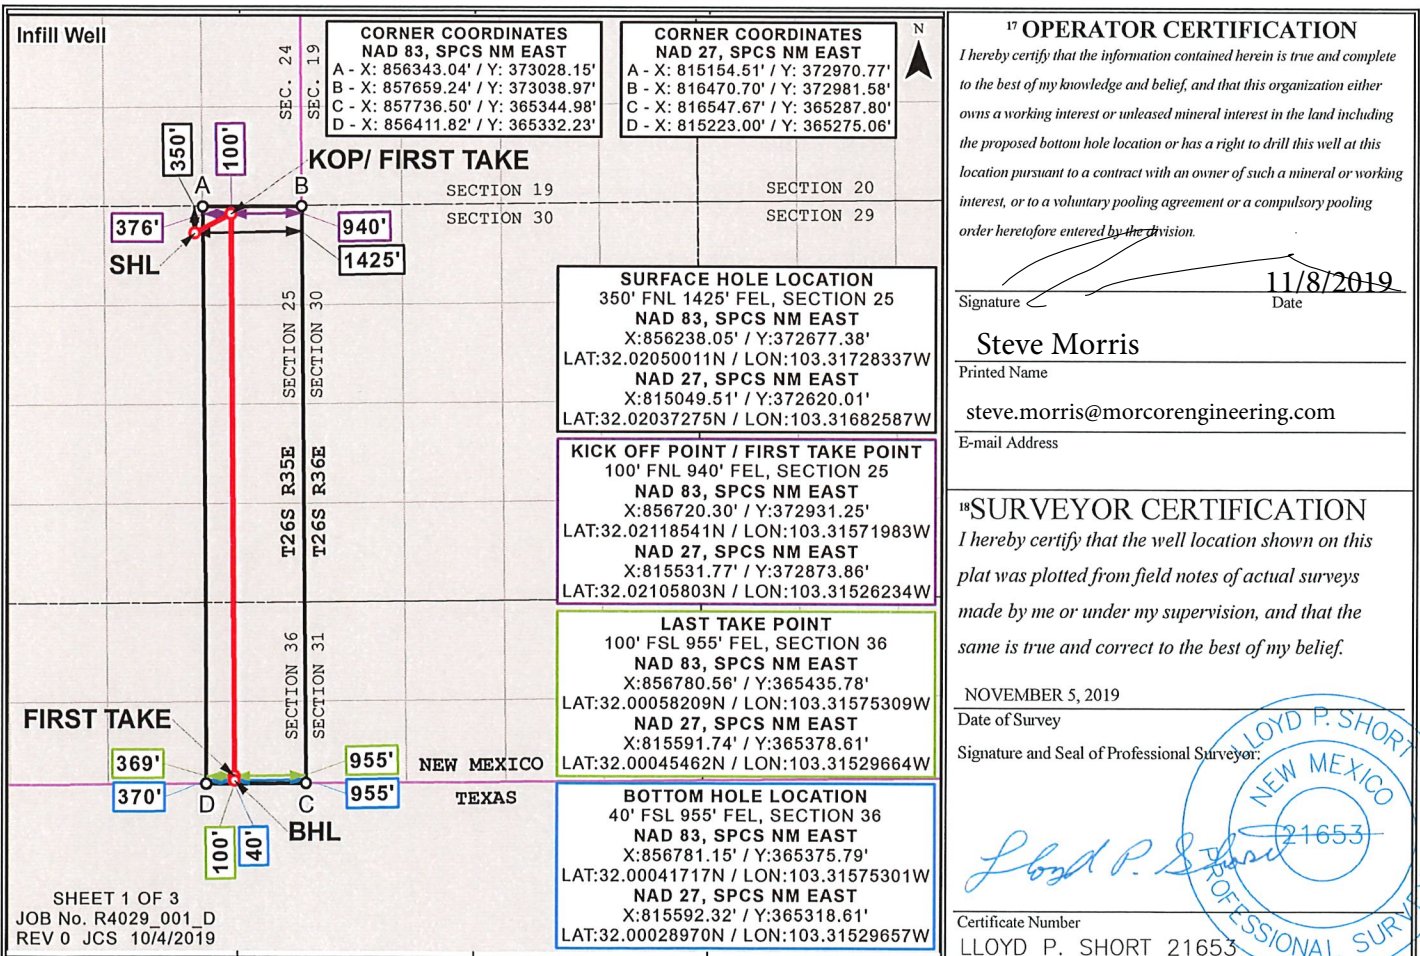 Infill Well
SEC. 24
SEC. 19
CORNER COORDINATES
NAD 83, SPCS NM EAST
A - X: 856343.04' / Y: 373028.15'
B - X: 857659.24' / Y: 373038.97'
C - X: 857736.50' / Y: 365344.98'
D - X: 856411.82' / Y: 365332.23'
CORNER COORDINATES
NAD 27, SPCS NM EAST
A - X: 815154.51' / Y: 372970.77'
B - X: 816470.70' / Y: 372981.58'
C - X: 816547.67' / Y: 365287.80'
D - X: 815223.00' / Y: 365275.06'
N
350'
100'
KOP/ FIRST TAKE
A
B
SECTION 19
SECTION 20
SECTION 30
SECTION 29
376'
940'
1425'
SHL
SECTION 25
SECTION 30
T26S R35E
T26S R36E
SECTION 36
SECTION 31
SURFACE HOLE LOCATION
350' FNL 1425' FEL, SECTION 25
NAD 83, SPCS NM EAST
X:856238.05' / Y:372677.38'
LAT:32.02050011N / LON:103.31728337W
NAD 27, SPCS NM EAST
X:815049.51' / Y:372620.01'
LAT:32.02037275N / LON:103.31682587W
KICK OFF POINT / FIRST TAKE POINT
100' FNL 940' FEL, SECTION 25
NAD 83, SPCS NM EAST
X:856720.30' / Y:372931.25'
LAT:32.02118541N / LON:103.31571983W
NAD 27, SPCS NM EAST
X:815531.77' / Y:372873.86'
LAT:32.02105803N / LON:103.31526234W
LAST TAKE POINT
100' FSL 955' FEL, SECTION 36
NAD 83, SPCS NM EAST
X:856780.56' / Y:365435.78'
LAT:32.00058209N / LON:103.31575309W
NAD 27, SPCS NM EAST
X:815591.74' / Y:365378.61'
LAT:32.00045462N / LON:103.31529664W
BOTTOM HOLE LOCATION
40' FSL 955' FEL, SECTION 36
NAD 83, SPCS NM EAST
X:856781.15' / Y:365375.79'
LAT:32.00041717N / LON:103.31575301W
NAD 27, SPCS NM EAST
X:815592.32' / Y:365318.61'
LAT:32.00028970N / LON:103.31529657W
FIRST TAKE
369'
955'
NEW MEXICO
370'
D
C
955'
TEXAS
100'
40'
BHL
SHEET 1 OF 3
JOB No. R4029_001_D
REV 0 JCS 10/4/2019
17 OPERATOR CERTIFICATION
I hereby certify that the information contained herein is true and complete
to the best of my knowledge and belief, and that this organization either
owns a working interest or unleased mineral interest in the land including
the proposed bottom hole location or has a right to drill this well at this
location pursuant to a contract with an owner of such a mineral or working
interest, or to a voluntary pooling agreement or a compulsory pooling
order heretofore entered by the division.
11/8/2019
Signature Date
Steve Morris
Printed Name
steve.morris@morcorengineering.com
E-mail Address
18 SURVEYOR CERTIFICATION
I hereby certify that the well location shown on this
plat was plotted from field notes of actual surveys
made by me or under my supervision, and that the
same is true and correct to the best of my belief.
NOVEMBER 5, 2019
Date of Survey
Signature and Seal of Professional Surveyor:
LLOYD P. SHORT
NEW MEXICO
21653
PROFESSIONAL SURVE
Lloyd P. Short
Certificate Number
LLOYD P. SHORT 21653